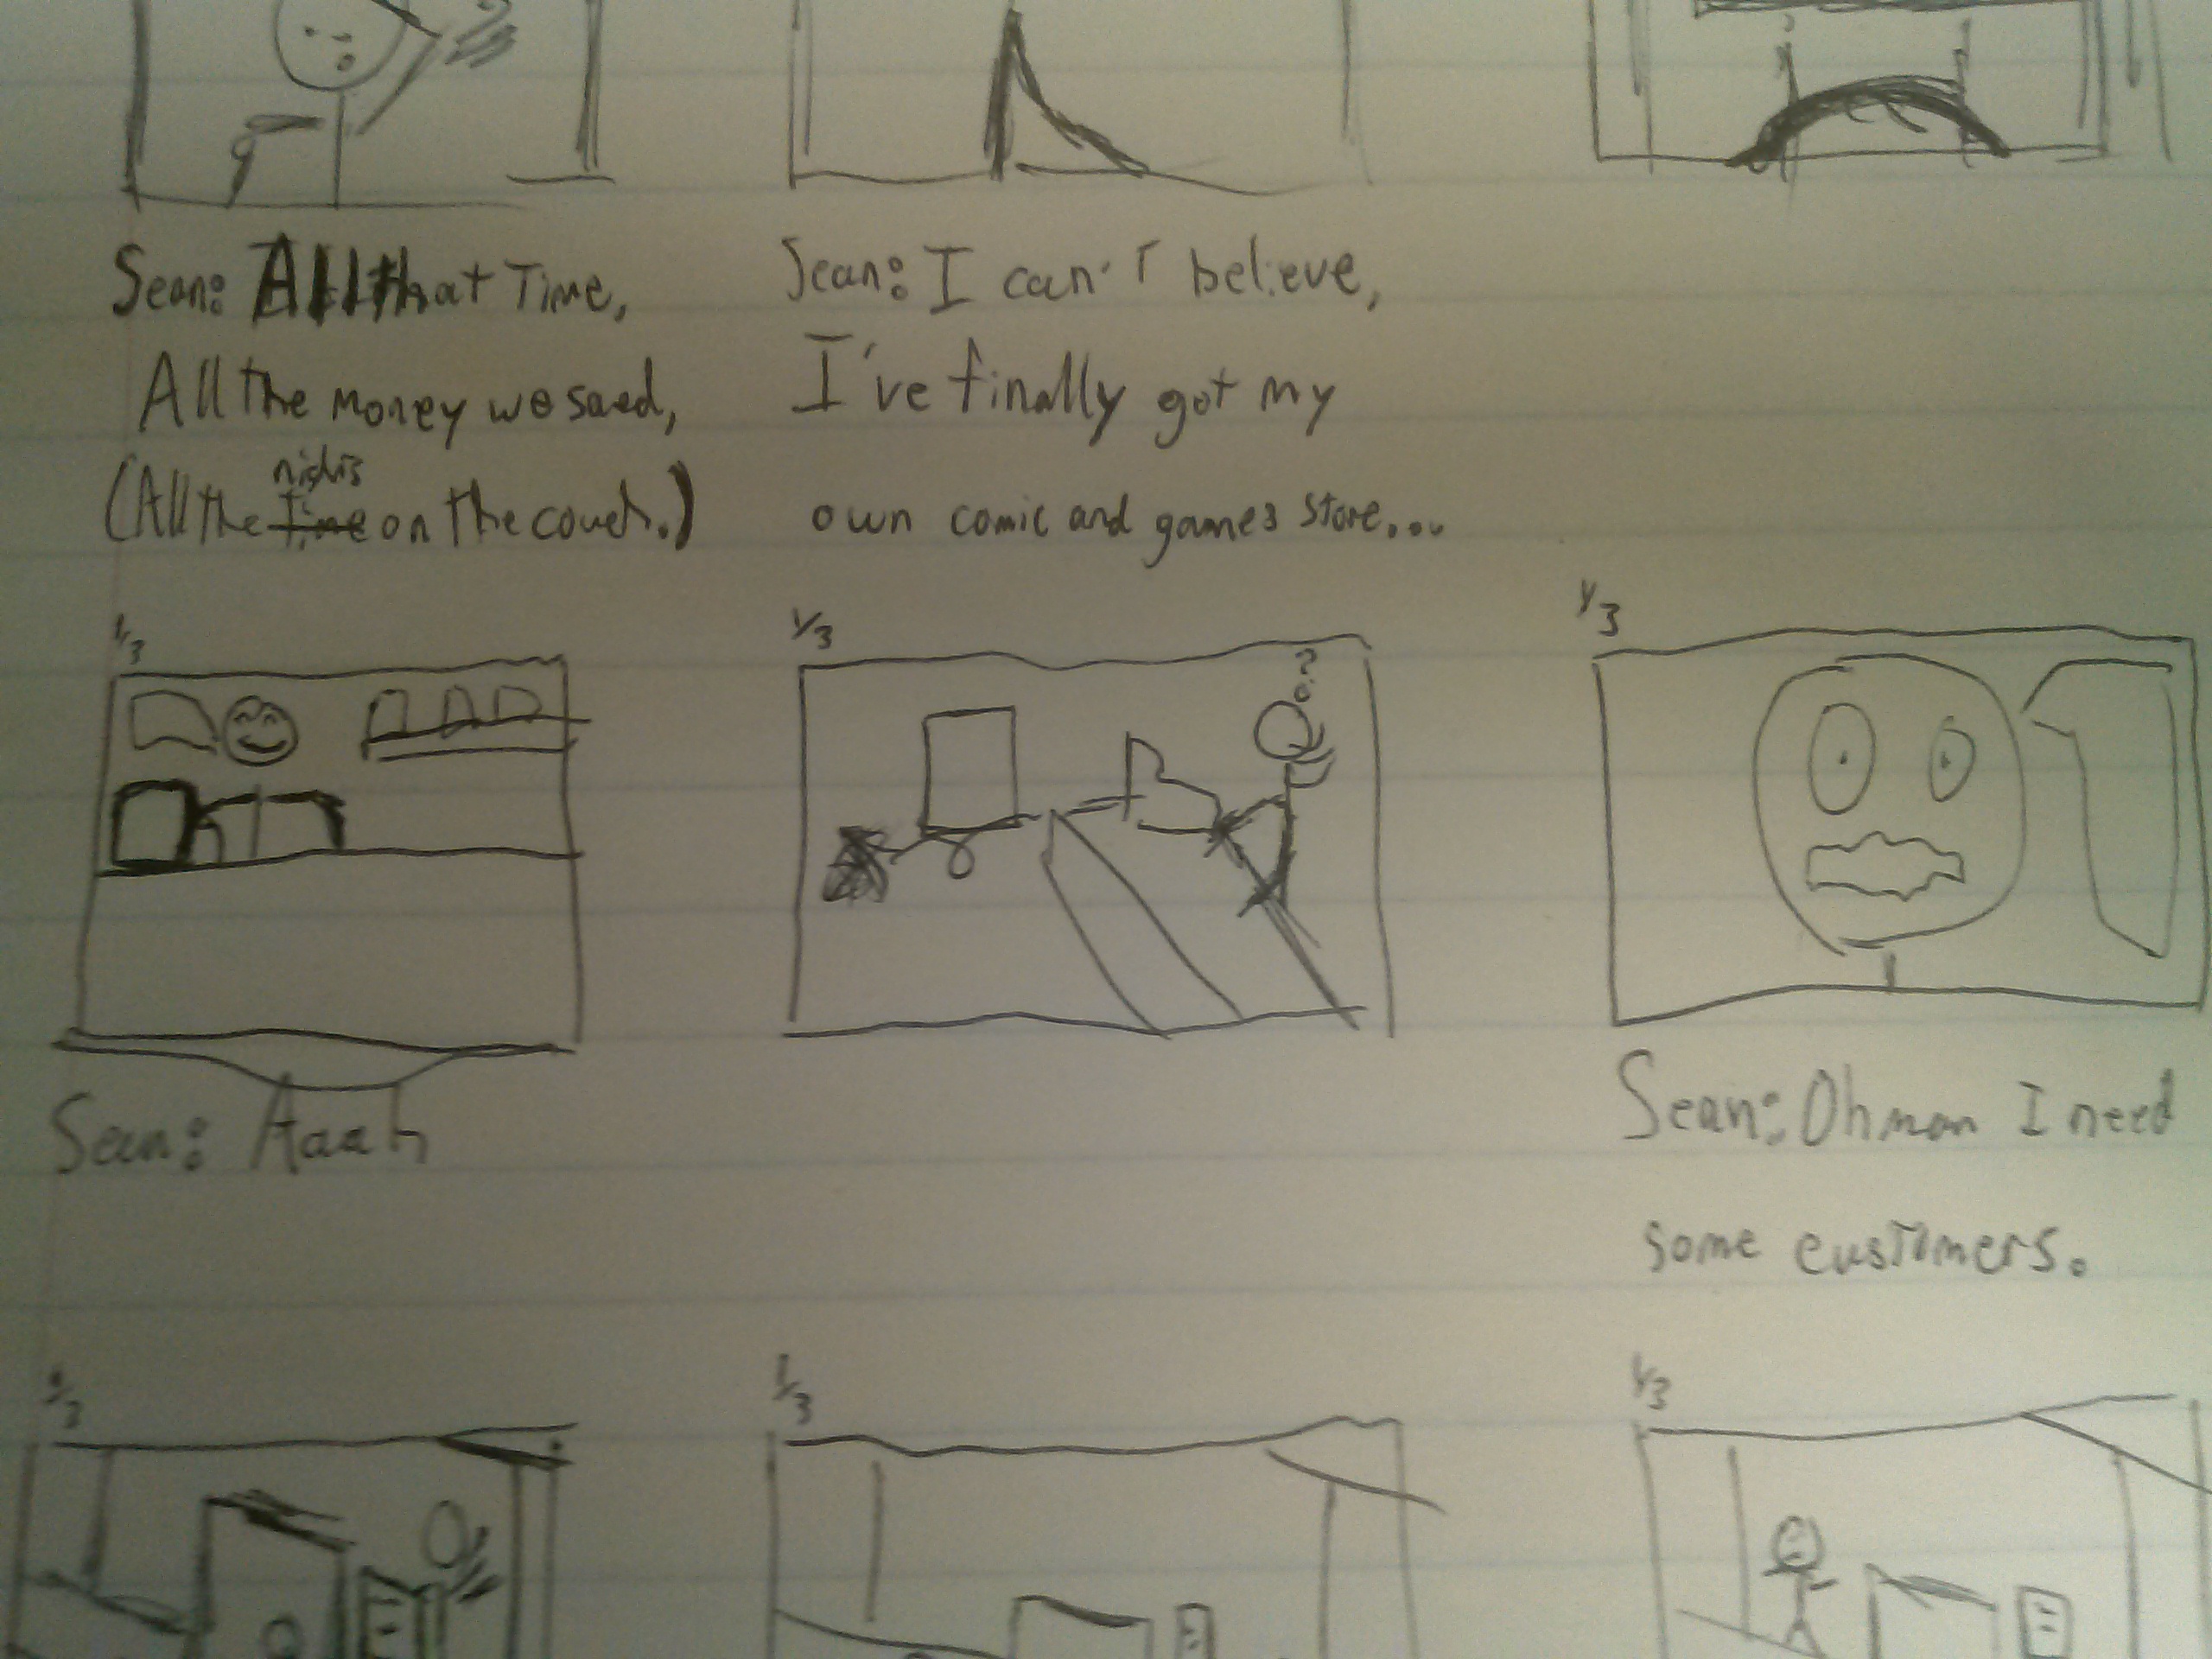 Sean: All that Time,
All the money we saed,
nights
(All the Time on the couch.)
Sean: I can't believe,
I've finally got my
own comic and games store....
1/3
1/3
1/3
?
Sean: Aaah
Sean: Oh man I need
some customers.
1/3
1/3
1/3